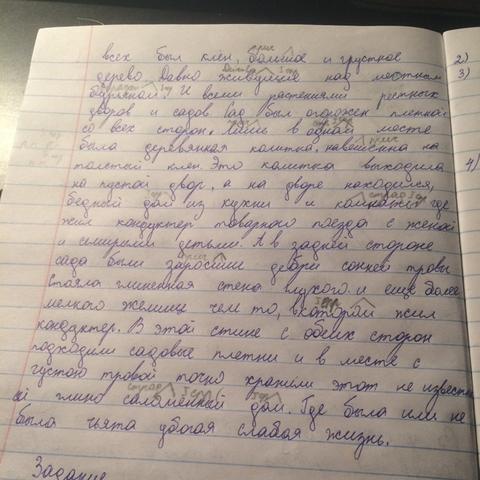 всех был клён, большое и грустное
дерево. Давно живущие над местным
И всеми растениями
дворов и садов. Сад был огорожен плетнёй
со всех сторон. Лишь в одном месте
была деревянная калитка навешинна на
толстый клен. Это колитка выходила
на пустой двор, а на дворе находился,
бедный дом из кухни и где
жил кондуктер товарного поезда с женой
и смирными детьми. А в задней стороне
сада были заросшие дебри сонней травы
стояла глиненная стена глухого и ещё более
мелкого жемища чем то, в которой жил
кондуктер. В этой стине с обеих сторон
подходили садовые плетни и в месте с
густою травой точно хранили этот не известн
ый глино саломенный дом. Где была или не
была чьята убогая слабая жизнь.
Задание
2)
3)
4)